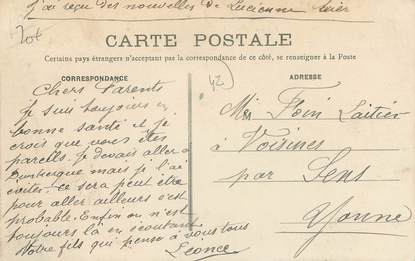 j'ai reçu des nouvelles de Lucienne hier
CARTE POSTALE
Certains pays étrangers n'acceptent pas la correspondance de ce côté, se renseigner à la Poste
CORRESPONDANCE
ADRESSE
Chers Parents
je suis toujours en
bonne santé et je
crois que vous êtes
pareils. Je devais aller à
Dunkerque mais je l'ai
évité. Ce sera peut être
pour aller ailleurs c'est
probable. Enfin on n'est
toujours là en écoutant
Votre fils qui pense à vous tous
Léonce
42
Mr Foin Laitier
à Voisines
par Sens
Yonne